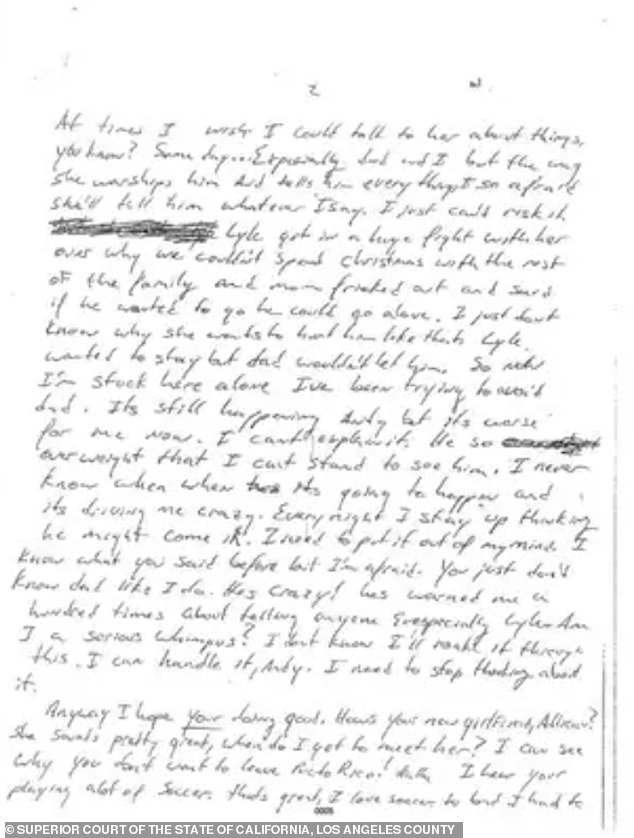 2
At times I wish I could talk to her about things,
you know? Some day... Expecially dad and I but the way
she worships him and tells him everything I so afraid
she'll tell him whatever I say. I just can't risk it.
Lyle got in a huge fight with her
over why we couldn't spend christmas with the rest
of the family and mom freaked out and said
if he wanted to go he could go alone. I just dont
know why she wants to hurt him like that. Lyle
wanted to stay but dad wouldn't let him. So now
I'm stuck here alone I've been trying to avoid
dad. Its still happening Andy but its worse
for me now. I can't explain it. He so
overweight that I can't stand to see him. I never
know when its going to happen and
its driving me crazy. Every night I stay up thinking
he might come in. I need to put it out of my mind. I
know what you said before but I'm afraid. You just don't
know dad like I do. Hes crazy! hes warned me a
hundred times about telling anyone Lyle. Am
I a serious whimpus? I dont know I'll make it through
this. I can handle it, Andy. I need to stop thinking about
it.
Anyway I hope your doing good. Hows your new girlfriend,
She sounds pretty great, when do I get to meet her? I can see
why you don't want to leave Puerto Rico! I hear your
playing alot of soccer. thats great, I love soccer to but I had to
0005
© SUPERIOR COURT OF THE STATE OF CALIFORNIA, LOS ANGELES COUNTY